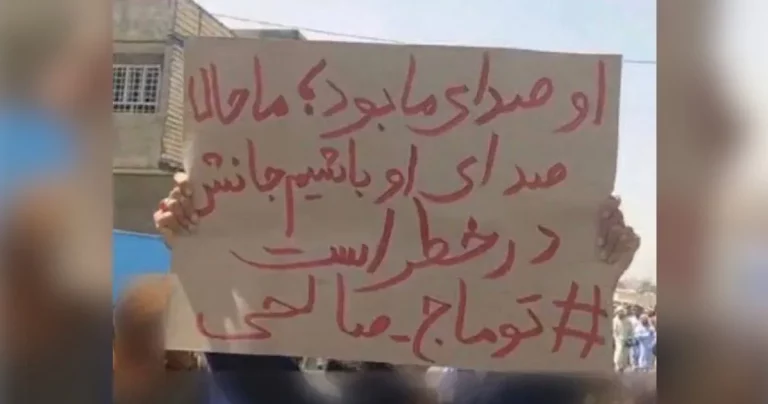 او صدای ما بود؛ ما حالا
صدای او باشیم جانش
در خطر است
#توماج_صالحی